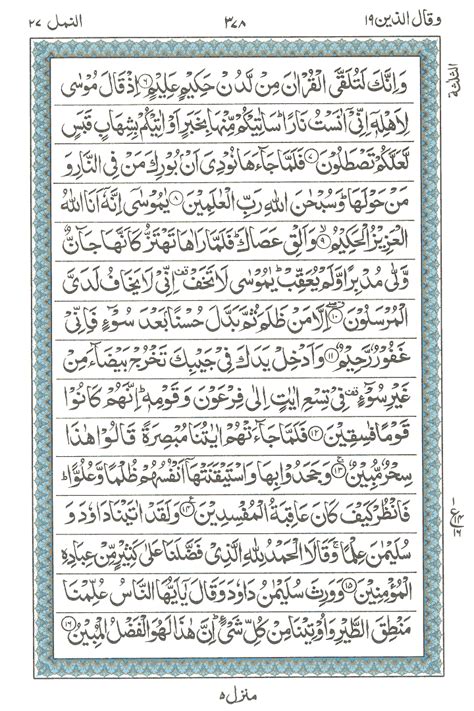 وقال الذین ۱۹
۳۷۸
النمل ۲۷
وَاِنَّكَ لَتُلَقَّى الْقُرْاٰنَ مِنْ لَّدُنْ حَكِیْمٍ عَلِیْمٍ ۶ اِذْ قَالَ مُوْسٰى
لِاَهْلِهٖۤ اِنِّیْۤ اٰنَسْتُ نَارًا ؕ سَاٰتِیْكُمْ مِّنْهَا بِخَبَرٍ اَوْ اٰتِیْكُمْ بِشِهَابٍ قَبَسٍ
لَّعَلَّكُمْ تَصْطَلُوْنَ ۷ فَلَمَّا جَآءَهَا نُوْدِیَ اَنْۢ بُوْرِكَ مَنْ فِی النَّارِ وَ
مَنْ حَوْلَهَا ؕ وَسُبْحٰنَ اللّٰهِ رَبِّ الْعٰلَمِیْنَ ۸ یٰمُوْسٰۤى اِنَّهٗۤ اَنَا اللّٰهُ
الْعَزِیْزُ الْحَكِیْمُ ۹ وَاَلْقِ عَصَاكَ ؕ فَلَمَّا رَاٰهَا تَهْتَزُّ كَاَنَّهَا جَآنٌّ
وَّلّٰى مُدْبِرًا وَّلَمْ یُعَقِّبْ ؕ یٰمُوْسٰى لَا تَخَفْ ۫ اِنِّیْ لَا یَخَافُ لَدَیَّ
الْمُرْسَلُوْنَ ۱۰ اِلَّا مَنْ ظَلَمَ ثُمَّ بَدَّلَ حُسْنًۢا بَعْدَ سُوْٓءٍ فَاِنِّیْ
غَفُوْرٌ رَّحِیْمٌ ۱۱ وَاَدْخِلْ یَدَكَ فِیْ جَیْبِكَ تَخْرُجْ بَیْضَآءَ مِنْ
غَیْرِ سُوْٓءٍ ۫ فِیْ تِسْعِ اٰیٰتٍ اِلٰى فِرْعَوْنَ وَقَوْمِهٖ ؕ اِنَّهُمْ كَانُوْا
قَوْمًا فٰسِقِیْنَ ۱۲ فَلَمَّا جَآءَتْهُمْ اٰیٰتُنَا مُبْصِرَةً قَالُوْا هٰذَا
سِحْرٌ مُّبِیْنٌ ۱۳ وَجَحَدُوْا بِهَا وَاسْتَیْقَنَتْهَاۤ اَنْفُسُهُمْ ظُلْمًا وَّعُلُوًّا ؕ
فَانْظُرْ كَیْفَ كَانَ عَاقِبَةُ الْمُفْسِدِیْنَ ۱۴ وَلَقَدْ اٰتَیْنَا دَاوٗدَ وَ
سُلَیْمٰنَ عِلْمًا ۚ وَقَالَا الْحَمْدُ لِلّٰهِ الَّذِیْ فَضَّلَنَا عَلٰى كَثِیْرٍ مِّنْ عِبَادِهِ
الْمُؤْمِنِیْنَ ۱۵ وَوَرِثَ سُلَیْمٰنُ دَاوٗدَ وَقَالَ یٰۤاَیُّهَا النَّاسُ عُلِّمْنَا
مَنْطِقَ الطَّیْرِ وَاُوْتِیْنَا مِنْ كُلِّ شَیْءٍ ؕ اِنَّ هٰذَا لَهُوَ الْفَضْلُ الْمُبِیْنُ ۱۶
الثلثة
ع
۱۶
منزل ۵